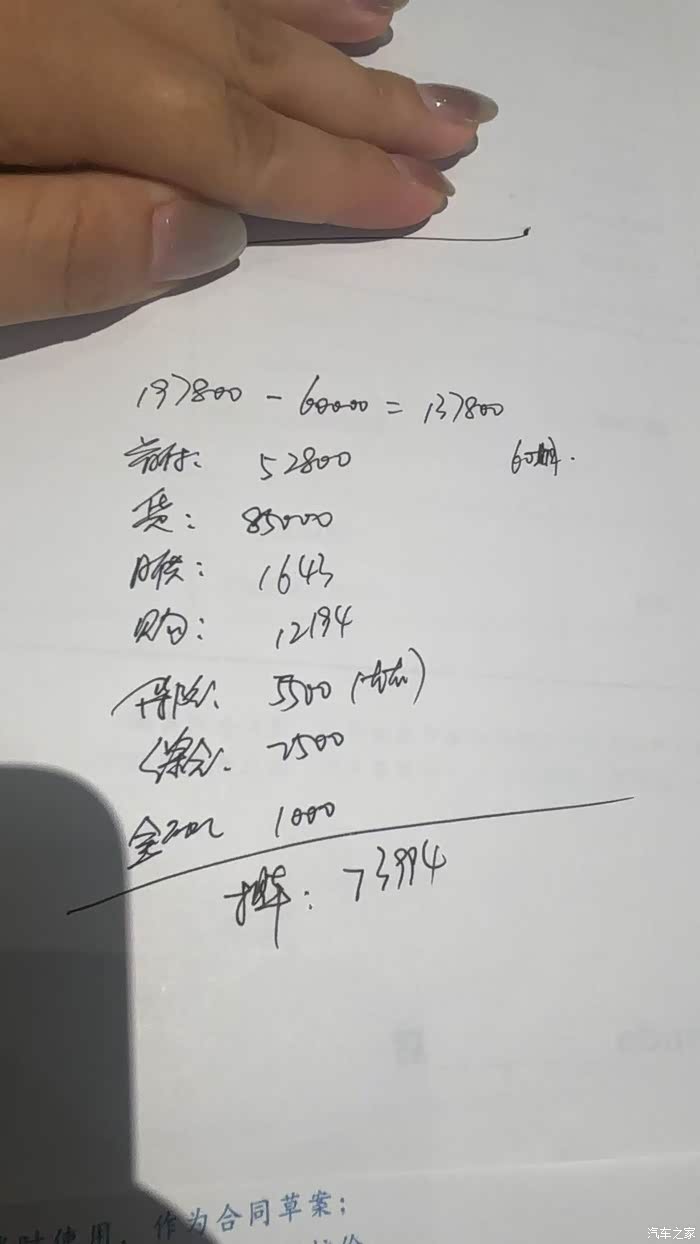 197800 - 60000 = 137800
首付: 52800 60期.
贷: 85000
月供: 1643
购: 12194
保险: 5500
综合: 2500
1000
提车: 73994
时使用，作为合同草案；
汽车之家